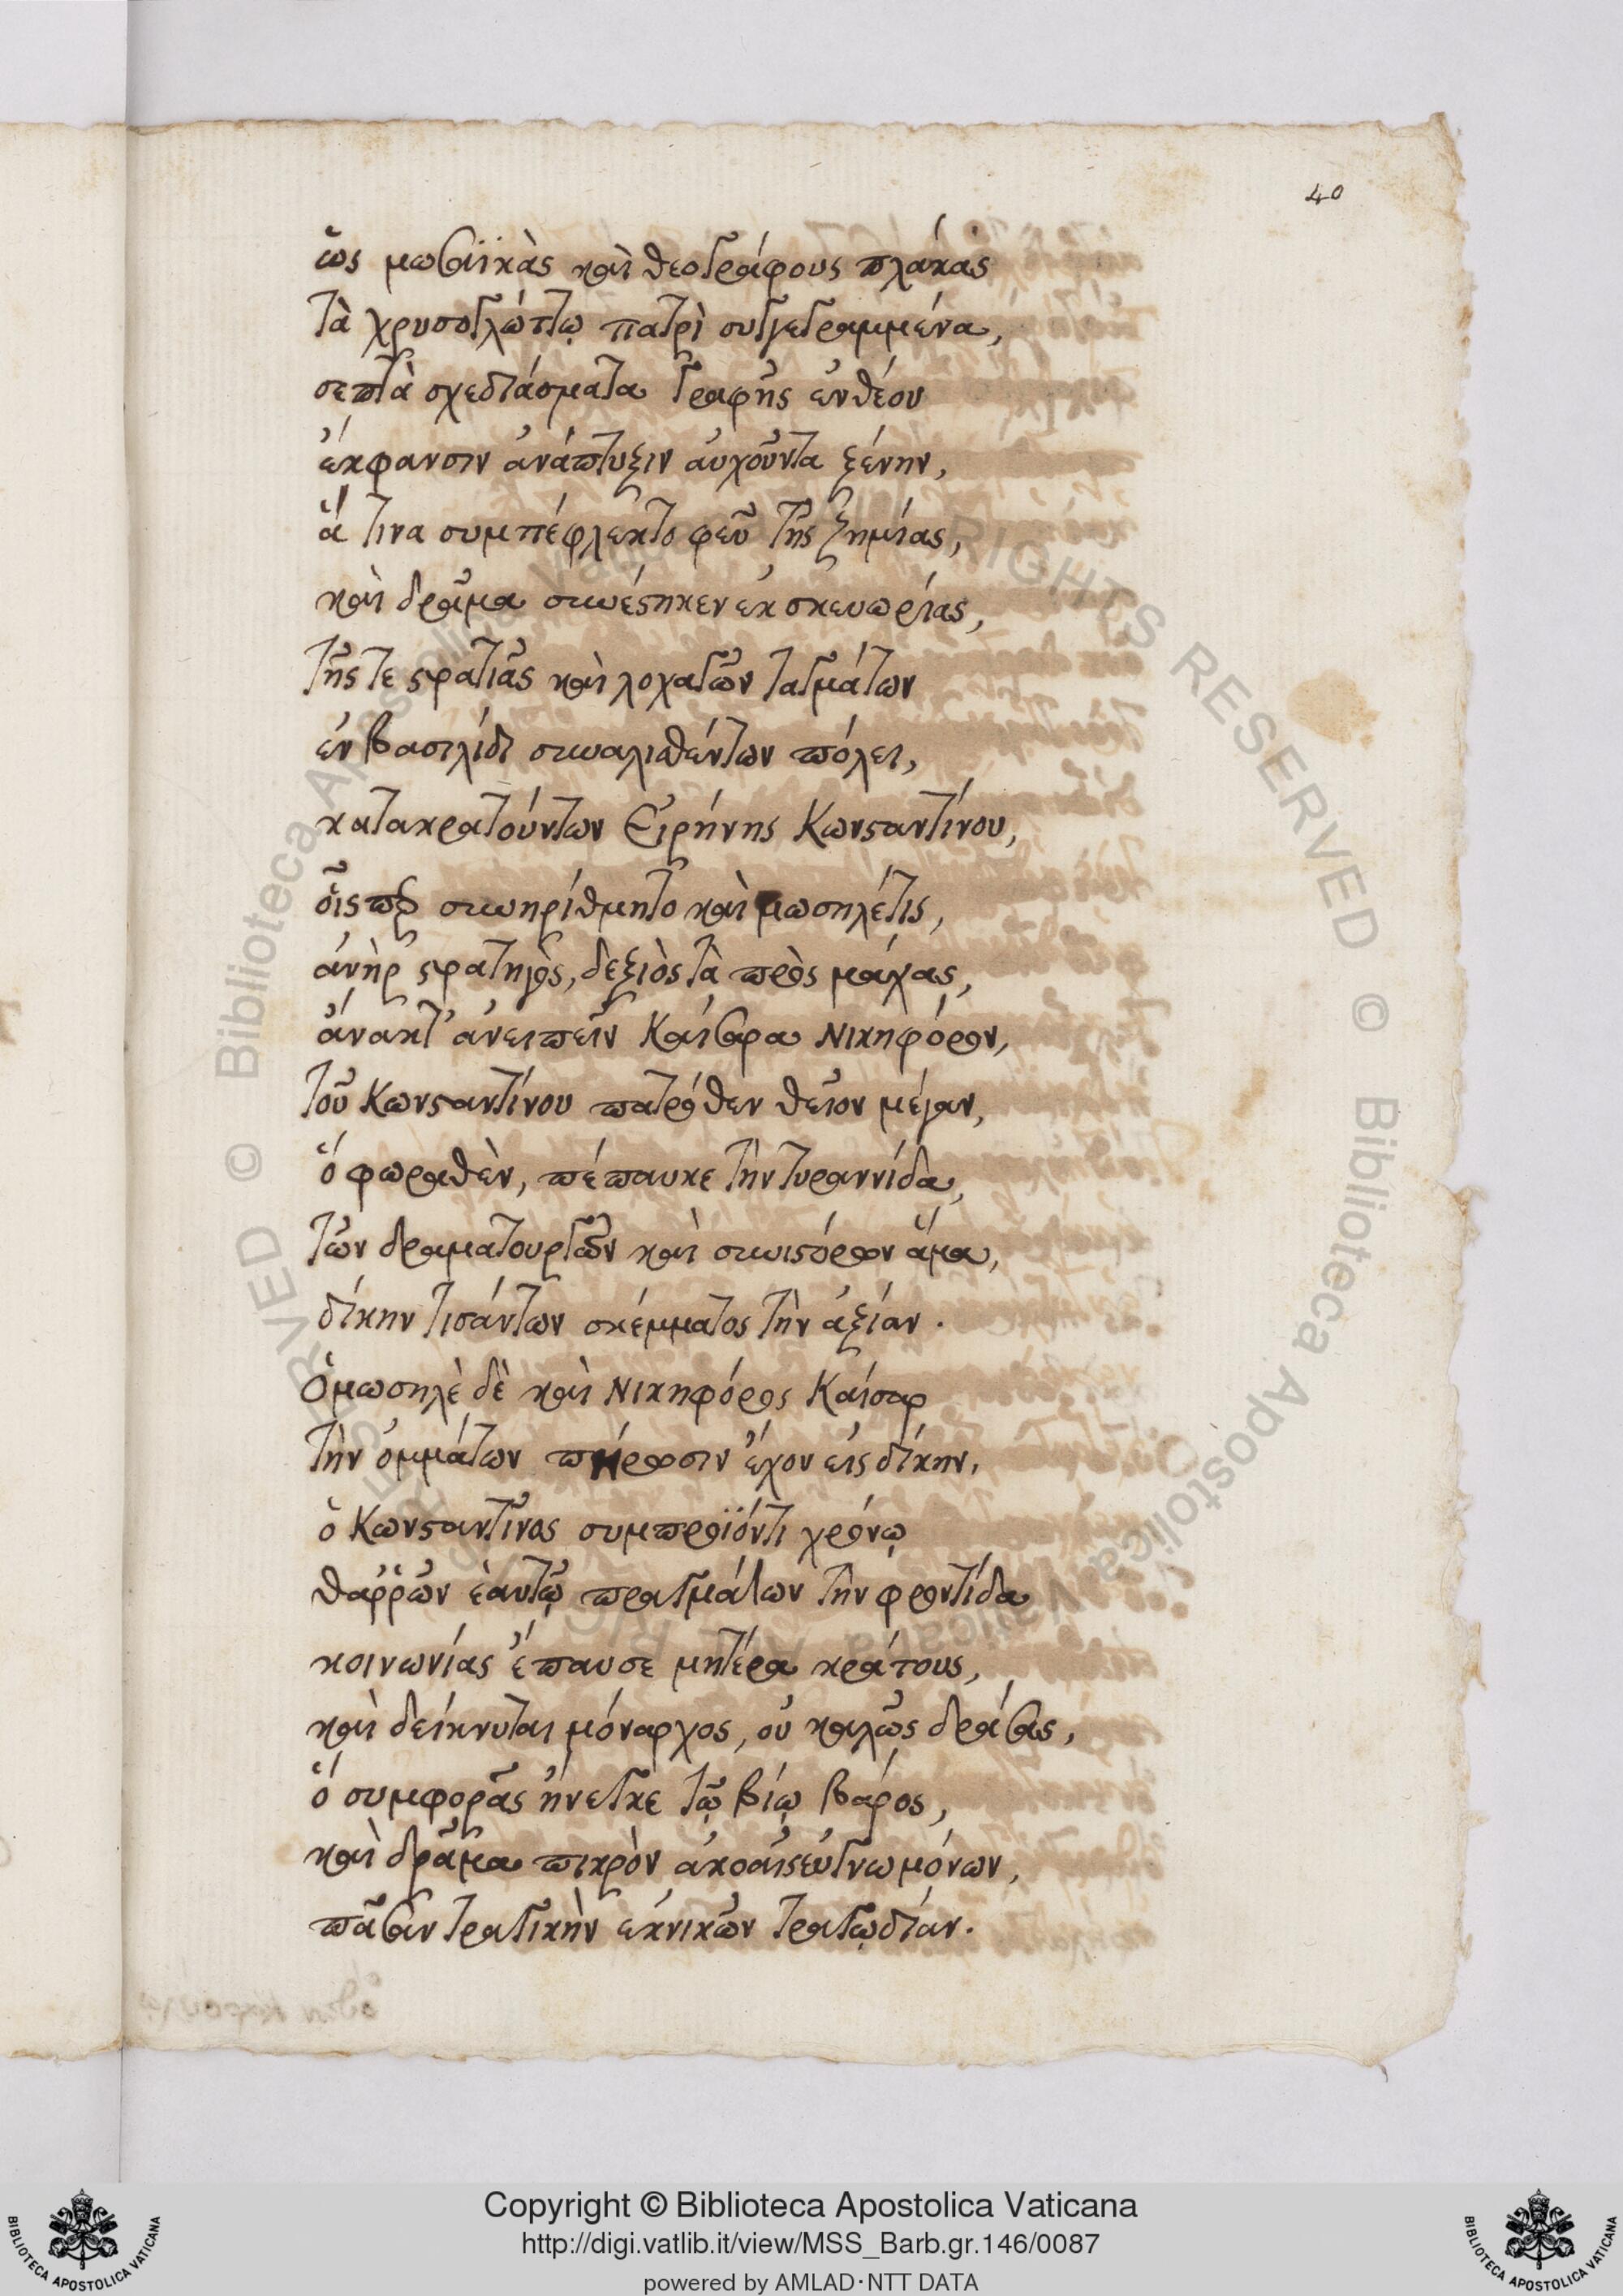 40
ὡς μωσαϊκὰς καὶ θεογράφους πλάκας
τὰ χρυσογλώττῳ πατρὶ συγγεγραμμένα,
σεπτὰ σχεδιάσματα γραφῆς ἐνθέου
ἔκφανσιν ἀνάπτυξιν αὐχοῦντα ξένην,
ἅ τινα συμπέφλεκτο φεῦ τῆς ζημίας,
καὶ δρᾶμα συνέστηκεν ἐκ σκευωρίας,
τῆς τε στρατιᾶς καὶ λοχαγῶν ταγμάτων
ἐν βασιλίδι συναλισθέντων πόλει,
κατακρατούντων Εἰρήνης Κωνσταντίνου,
οἷς περ συνηρίθμητο καὶ μωσηλέτις,
ἀνὴρ στρατηγὸς, δεξιὸς τὰ πρὸς μάχας,
ἄνακτ' ἀνειπεῖν Καίσαρα Νικηφόρον,
τοῦ Κωνσταντίνου πατρόθεν θεῖον μέγαν,
ὃ φωραθὲν, πέπαυκε τὴν τυραννίδα,
τῶν δραματουργῶν καὶ συνιστόρων ἅμα,
δίκην τισάντων σκέμματος τὴν ἀξίαν.
Ὁ μωσηλὲ δὲ καὶ Νικηφόρος Καίσαρ
τὴν ὀμμάτων πήρωσιν ἔχον εἰς δίκην.
ὁ Κωνσταντῖνος συμπροϊόντι χρόνῳ
θαῤῥῶν ἑαυτῷ πραγμάτων τὴν φροντίδα
κοινωνίας ἔπαυσε μητέρα κράτους,
καὶ δείκνυται μόναρχος, οὐ καλῶς δράσας,
ὃ συμφορᾶς ἤνεγκε τῷ βίῳ βάρος,
καὶ δρᾶμα πικρὸν ἀκοαῖς εὐγνωμόνων,
πᾶσαν τραγικὴν ἐκνικῶν τραγῳδίαν.
Copyright © Biblioteca Apostolica Vaticana
http://digi.vatlib.it/view/MSS_Barb.gr.146/0087
powered by AMLAD·NTT DATA